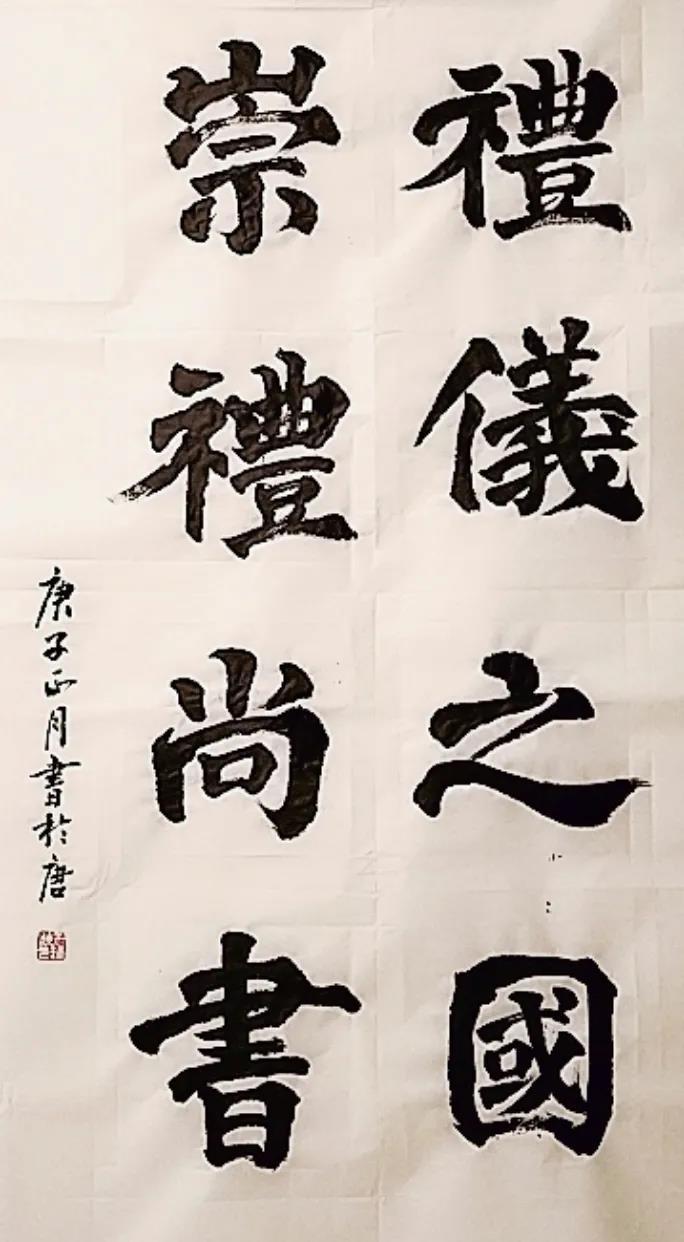 禮儀之國
崇禮尚書
庚子正月書於唐